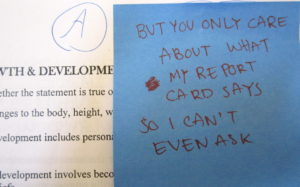 A
BUT YOU ONLY CARE
ABOUT WHAT
MY REPORT
CARD SAYS
SO I CAN'T
EVEN ASK
WTH & DEVELOPME
ether the statement is true o
nges to the body, height, w
velopment includes persona
development involves beco